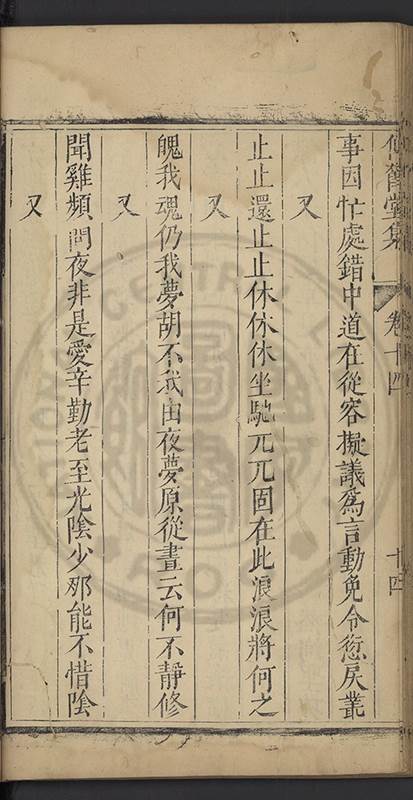 堂集 卷十四 十四
事因忙處錯中道在從容擬議爲言動免令愆戾叢
又
止止還止止休休休坐馳兀兀固在此浪浪將何之
又
魄我魂仍我夢胡不我由夜夢原從晝云何不靜修
又
聞雞頻問夜非是愛辛勤老至光陰少那能不惜陰
又